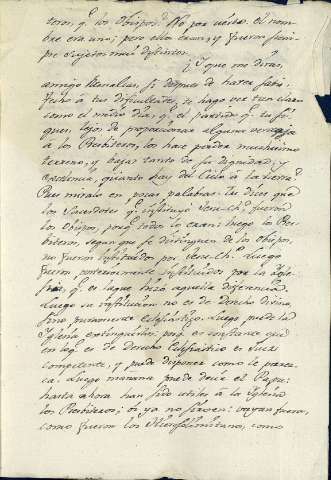 tores, q.e los Obispos. No por cierto. El nom-
bre era uno; pero ellos eran, y fueron siem-
pre sujetos muy distintos.
¿Y que me diras,
amigo si despues de haver satis-
fecho á tus dificultades, te hago ver tan claro
como el medio dia, q.e el partido q.e tu si-
gues, lejos de proporcionar alguna ventaja
á los Presbiteros, los hace perder muchisimo
terreno, y bajar tanto de su dignidad, y
excelencia, quanto hay del Cielo á la tierra?
Pues miralo en pocas palabras. Tu dices que
los Sacerdotes q.e instituyó Jesu-Ch.to fueron
los Obispos, porq.e todos lo eran: luego los Pres-
biteros, segun que se distinguen de los Obispos,
no fueron instituidos por Jesu-Ch.to Luego
fueron posteriormente instituidos por la Igle-
sia, q.e es la que hizo aquella diferencia.
Luego su institucion no es de Derecho divino,
sino puramente Eclesiastico. Luego puede la
Iglesia extinguirlos; porq.e es constante que
en loq.e es de Derecho Eclesiastico es Juez
competente, y puede disponer como le parez-
ca. Luego mañana puede decir el Papa:
hasta ahora han sido utiles á la Iglesia
los Presbiteros; si ya no sirven: vayan fuera,
como fueron los como